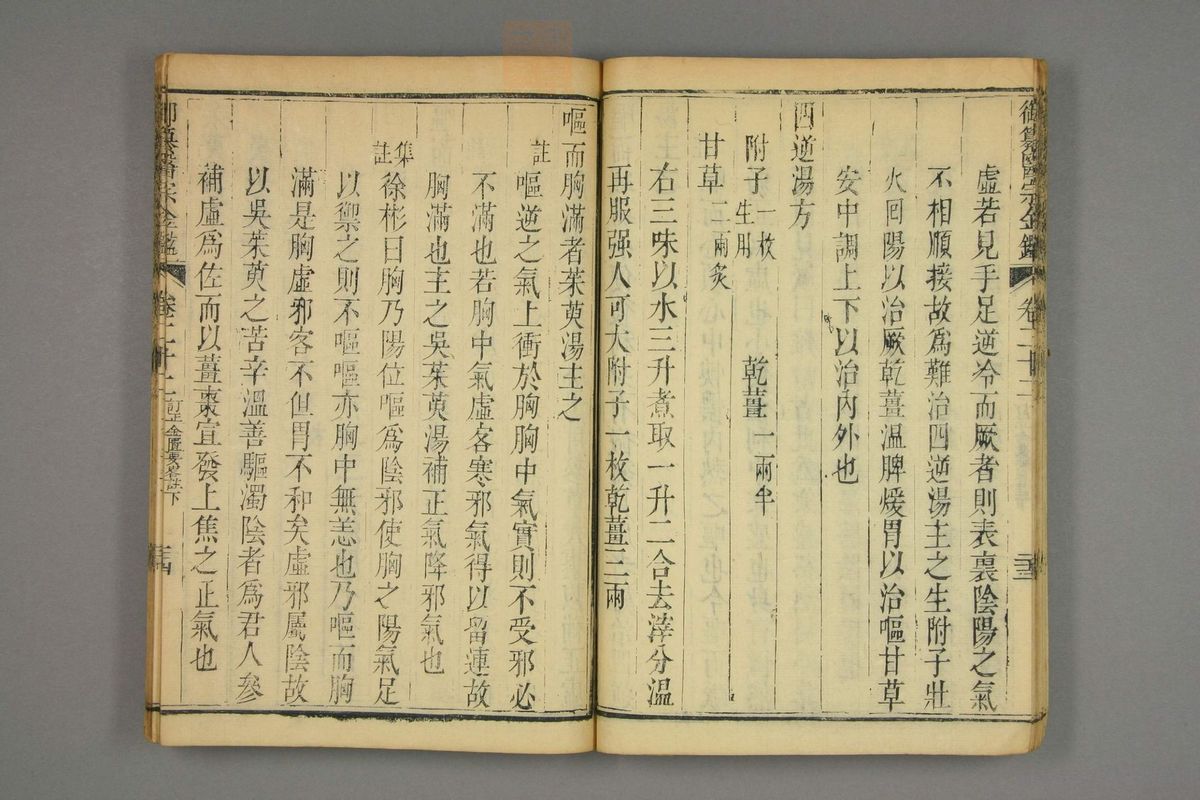 御纂醫宗金鑑 卷二十二
虛若見手足逆冷而厥者則表裏陰陽之氣
不相順接故為難治四逆湯主之生附子壯
火回陽以治厥乾薑溫脾煖胃以治嘔甘草
安中調上下以治內外也
四逆湯方
附子一枚生用 乾薑一兩半
甘草二兩炙
右三味以水三升煮取一升二合去滓分溫
再服强人可大附子一枚乾薑三兩
嘔而胸滿者茱萸湯主之
註嘔逆之氣上衝於胸胸中氣實則不受邪必
不滿也若胸中氣虛客寒邪氣得以留連故
胸滿也主之吳茱萸湯補正氣降邪氣也
集註徐彬曰胸乃陽位嘔為陰邪使胸之陽氣足
以禦之則不嘔嘔亦胸中無恙也乃嘔而胸
滿是胸虛邪客不但胃不和矣虛邪屬陰故
以吳茱萸之苦辛溫善驅濁陰者為君人參
補虛為佐而以薑棗宣發上焦之正氣也
御纂醫宗金鑑 卷二十二 訂正金匱要畧註下 二十四